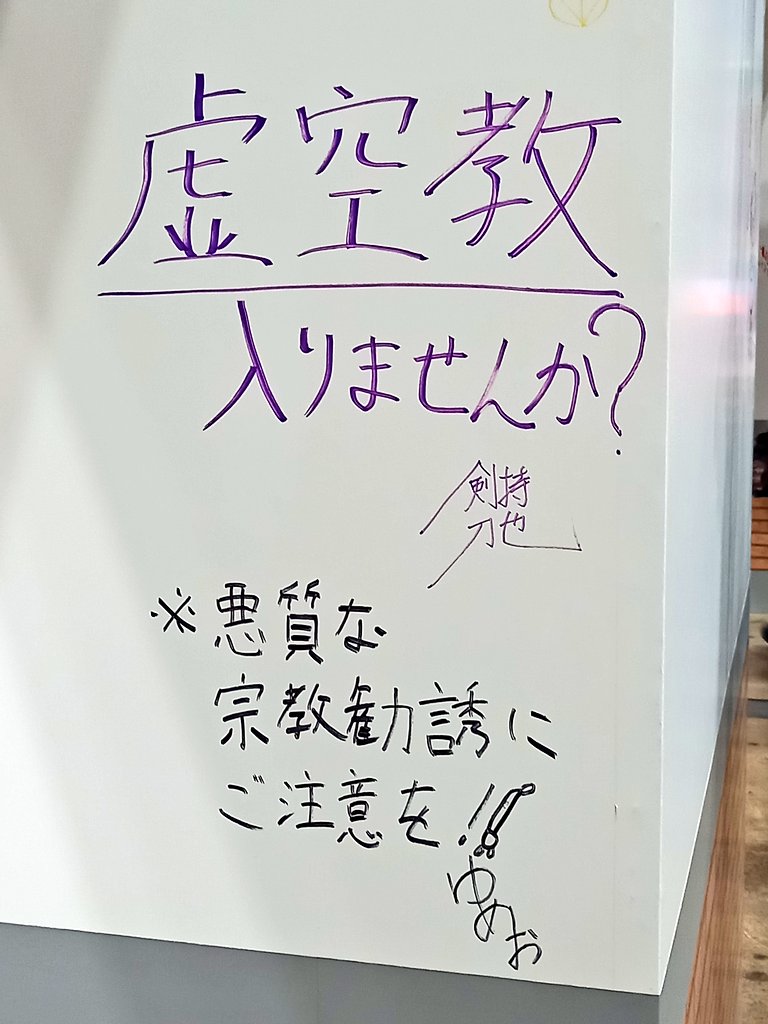 虚空教
入りませんか?
剣持
刀也
※悪質な
宗教勧誘に
ご注意を!!
ゆめお